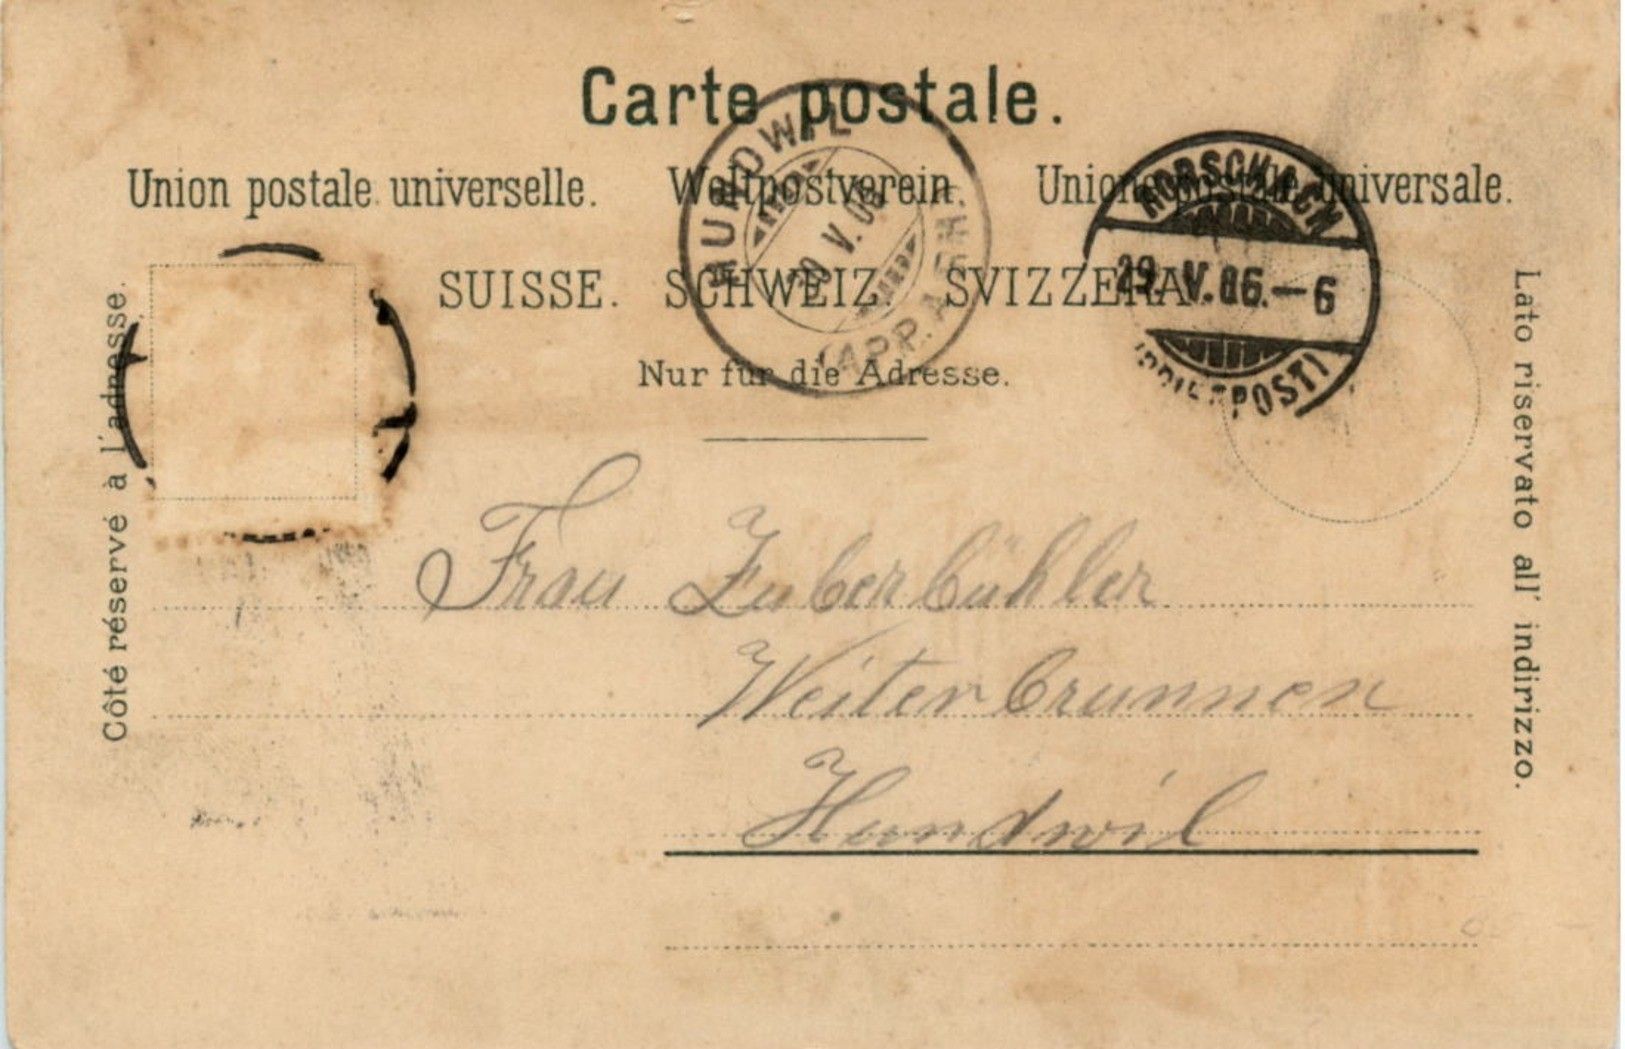 Carte postale.
Union postale universelle. Weltpostverein. Unione postale universale.
SUISSE. SCHWEIZ. SVIZZERA.
Nur für die Adresse.
Côté réservé à l'adresse.
Lato riservato all' indirizzo.
HUNDWIL
V.06
(APP. A. RH.
RORSCHACH
29. V. 06.–6
(BRIEFPOST)
Frau Zuberbühler
Weiterbrunnen
Hundwil